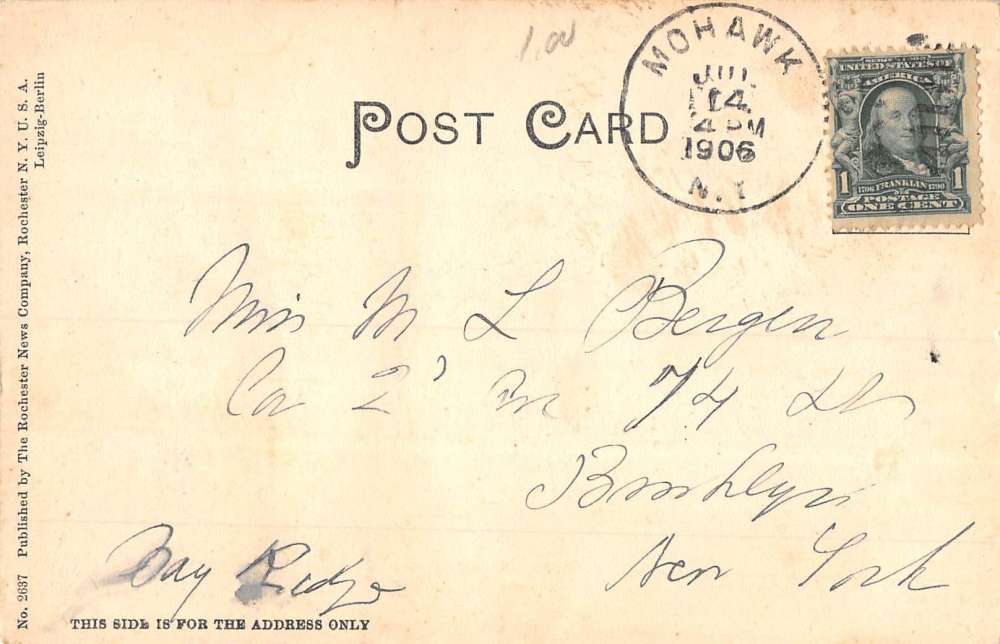 1.00
POST CARD
MOHAWK
JUL
14
4 PM
1906
N.Y.
SERIES 1902
UNITED STATES OF
AMERICA
1 1706 FRANKLIN 1790 1
POSTAGE
ONE CENT
Miss M L Bergen
Co 2' Ave 74 St
Brooklyn
New York
Bay Ridge
THIS SIDE IS FOR THE ADDRESS ONLY
No. 2637 Published by The Rochester News Company, Rochester N. Y. U. S. A.
Leipzig-Berlin